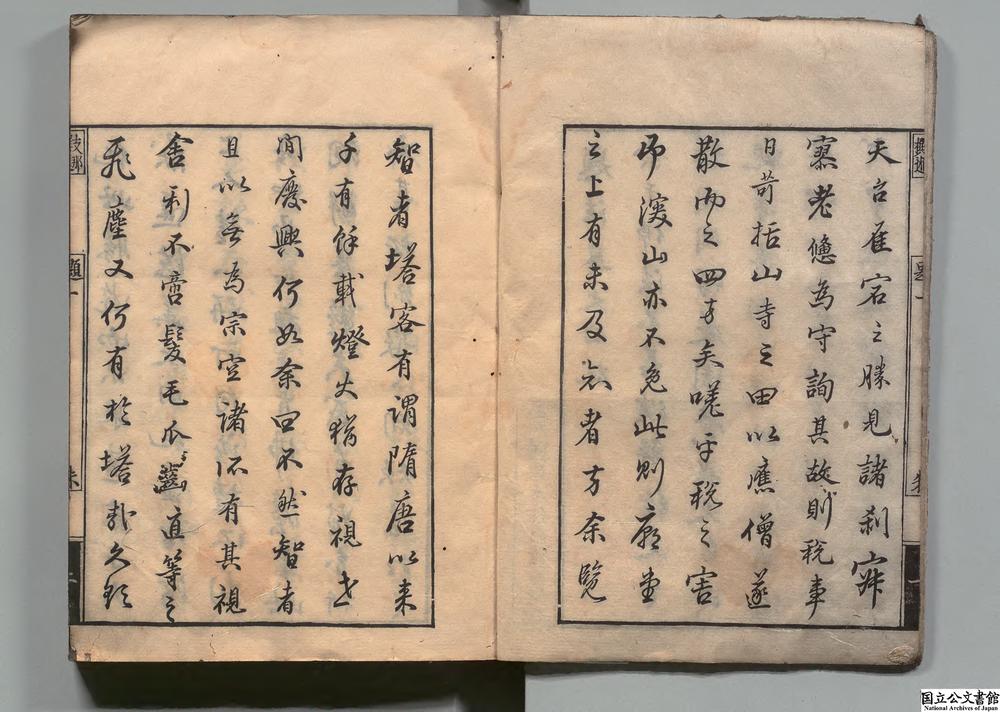 天台雁宕之勝見諸刹寂
寞老憊為守詢其故則税事
日苛括山寺之田以應僧遂
散而之四方矣嗟乎税之害
即深山亦不免此則廟堂
之上有未及知者方余覽
智者塔客有謂隋唐以来
千有餘載燈火猶存視世
間廢興何如余曰不然智者
且以無為宗空諸所有其視
舍利不啻髮毛爪齒直等之
飛塵又何有於塔哉久
題一
国立公文書館
National Archives of Japan